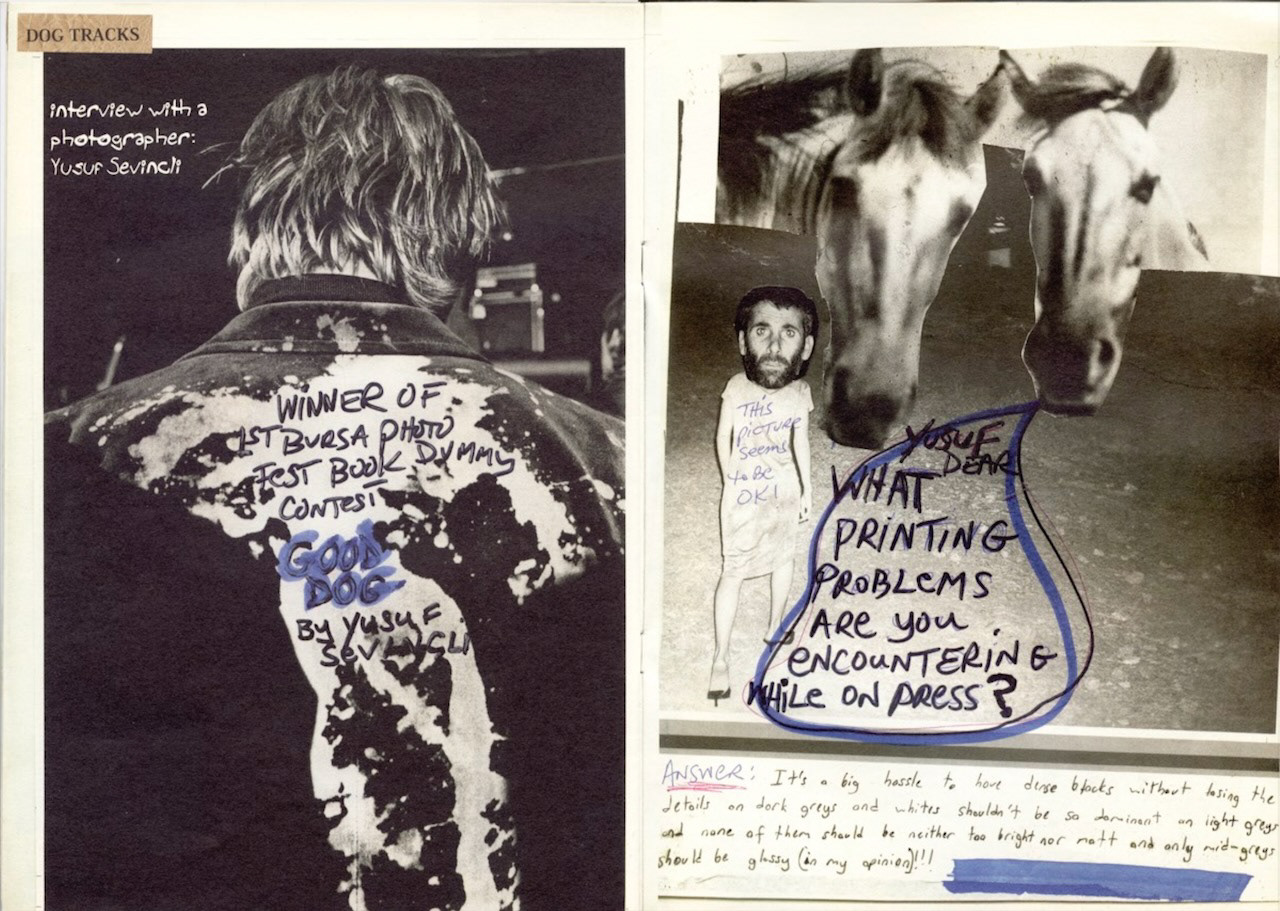 DOG TRACKS
interview with a
photographer:
Yusuf Sevincli
WINNER OF
1ST BURSA PHOTO
FEST BOOK DUMMY
CONTEST
GOOD
DOG
BY YUSUF
SEVINCLI
THIS
PICTURE
seems
to BE
OK!
YUSUF
DEAR
WHAT
PRINTING
PROBLEMS
ARE you
ENCOUNTERING
WHILE ON PRESS?
ANSWER: It's a big hassle to have dense blacks without losing the
details on dark greys and whites shouldn't be so dominant on light greys
and none of them should be neither too bright nor matt and only mid-greys
should be glossy (in my opinion)!!!